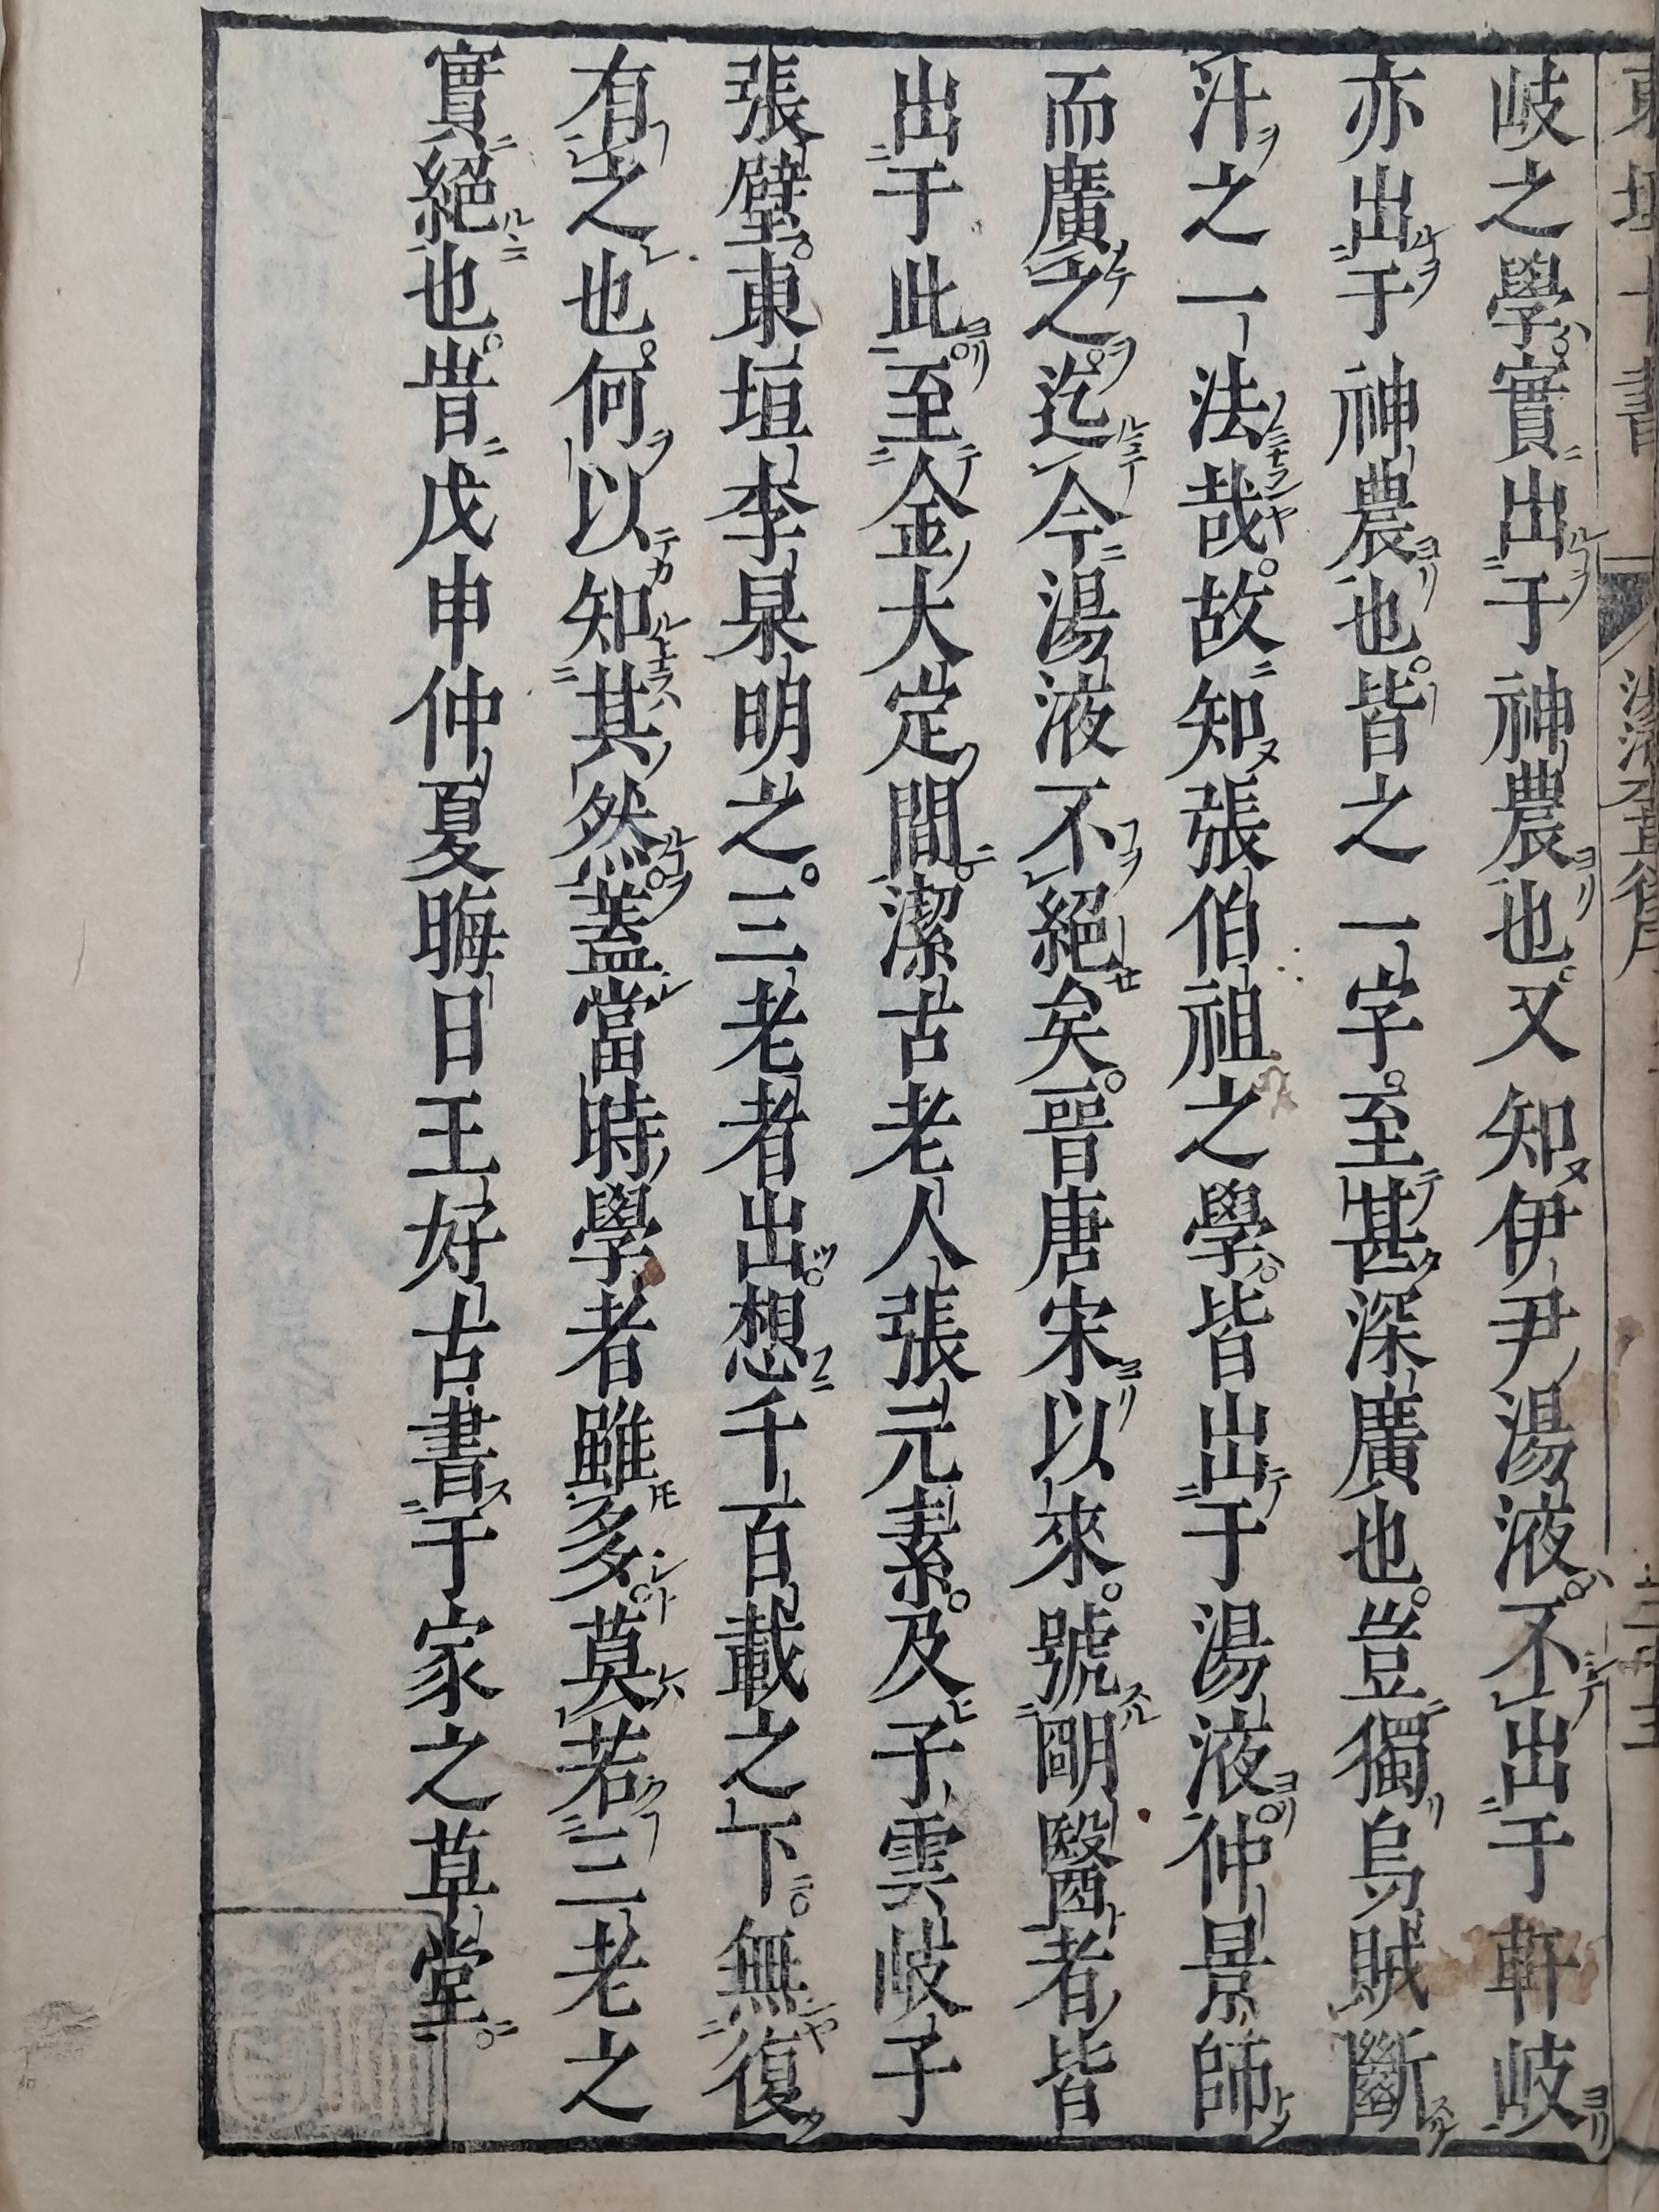 岐之學實出于神農也又知伊尹湯液不出于軒岐
亦出于神農也皆之一字至甚深廣也豈獨烏賊斷
汗之一法哉故知張伯祖之學皆出于湯液仲景師
而廣之迄今湯液不絕矣晉唐宋以來號明醫者皆
出于此至金大定間潔古老人張元素及子雲岐子
張璧東垣李杲明之三老者出想千百載之下無復
有之也何以知其然蓋當時學者雖多莫若三老之
實絕也旹戊申仲夏晦日王好古書于家之草堂